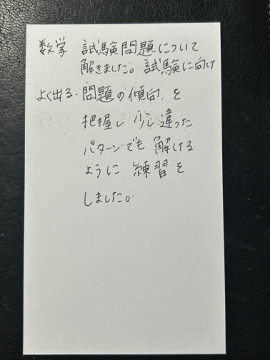 数学 試験問題について
解きました。試験に向け
よく出る・問題の傾向を
把握し 少し違った
パターンでも 解ける
ように 練習を
しました。